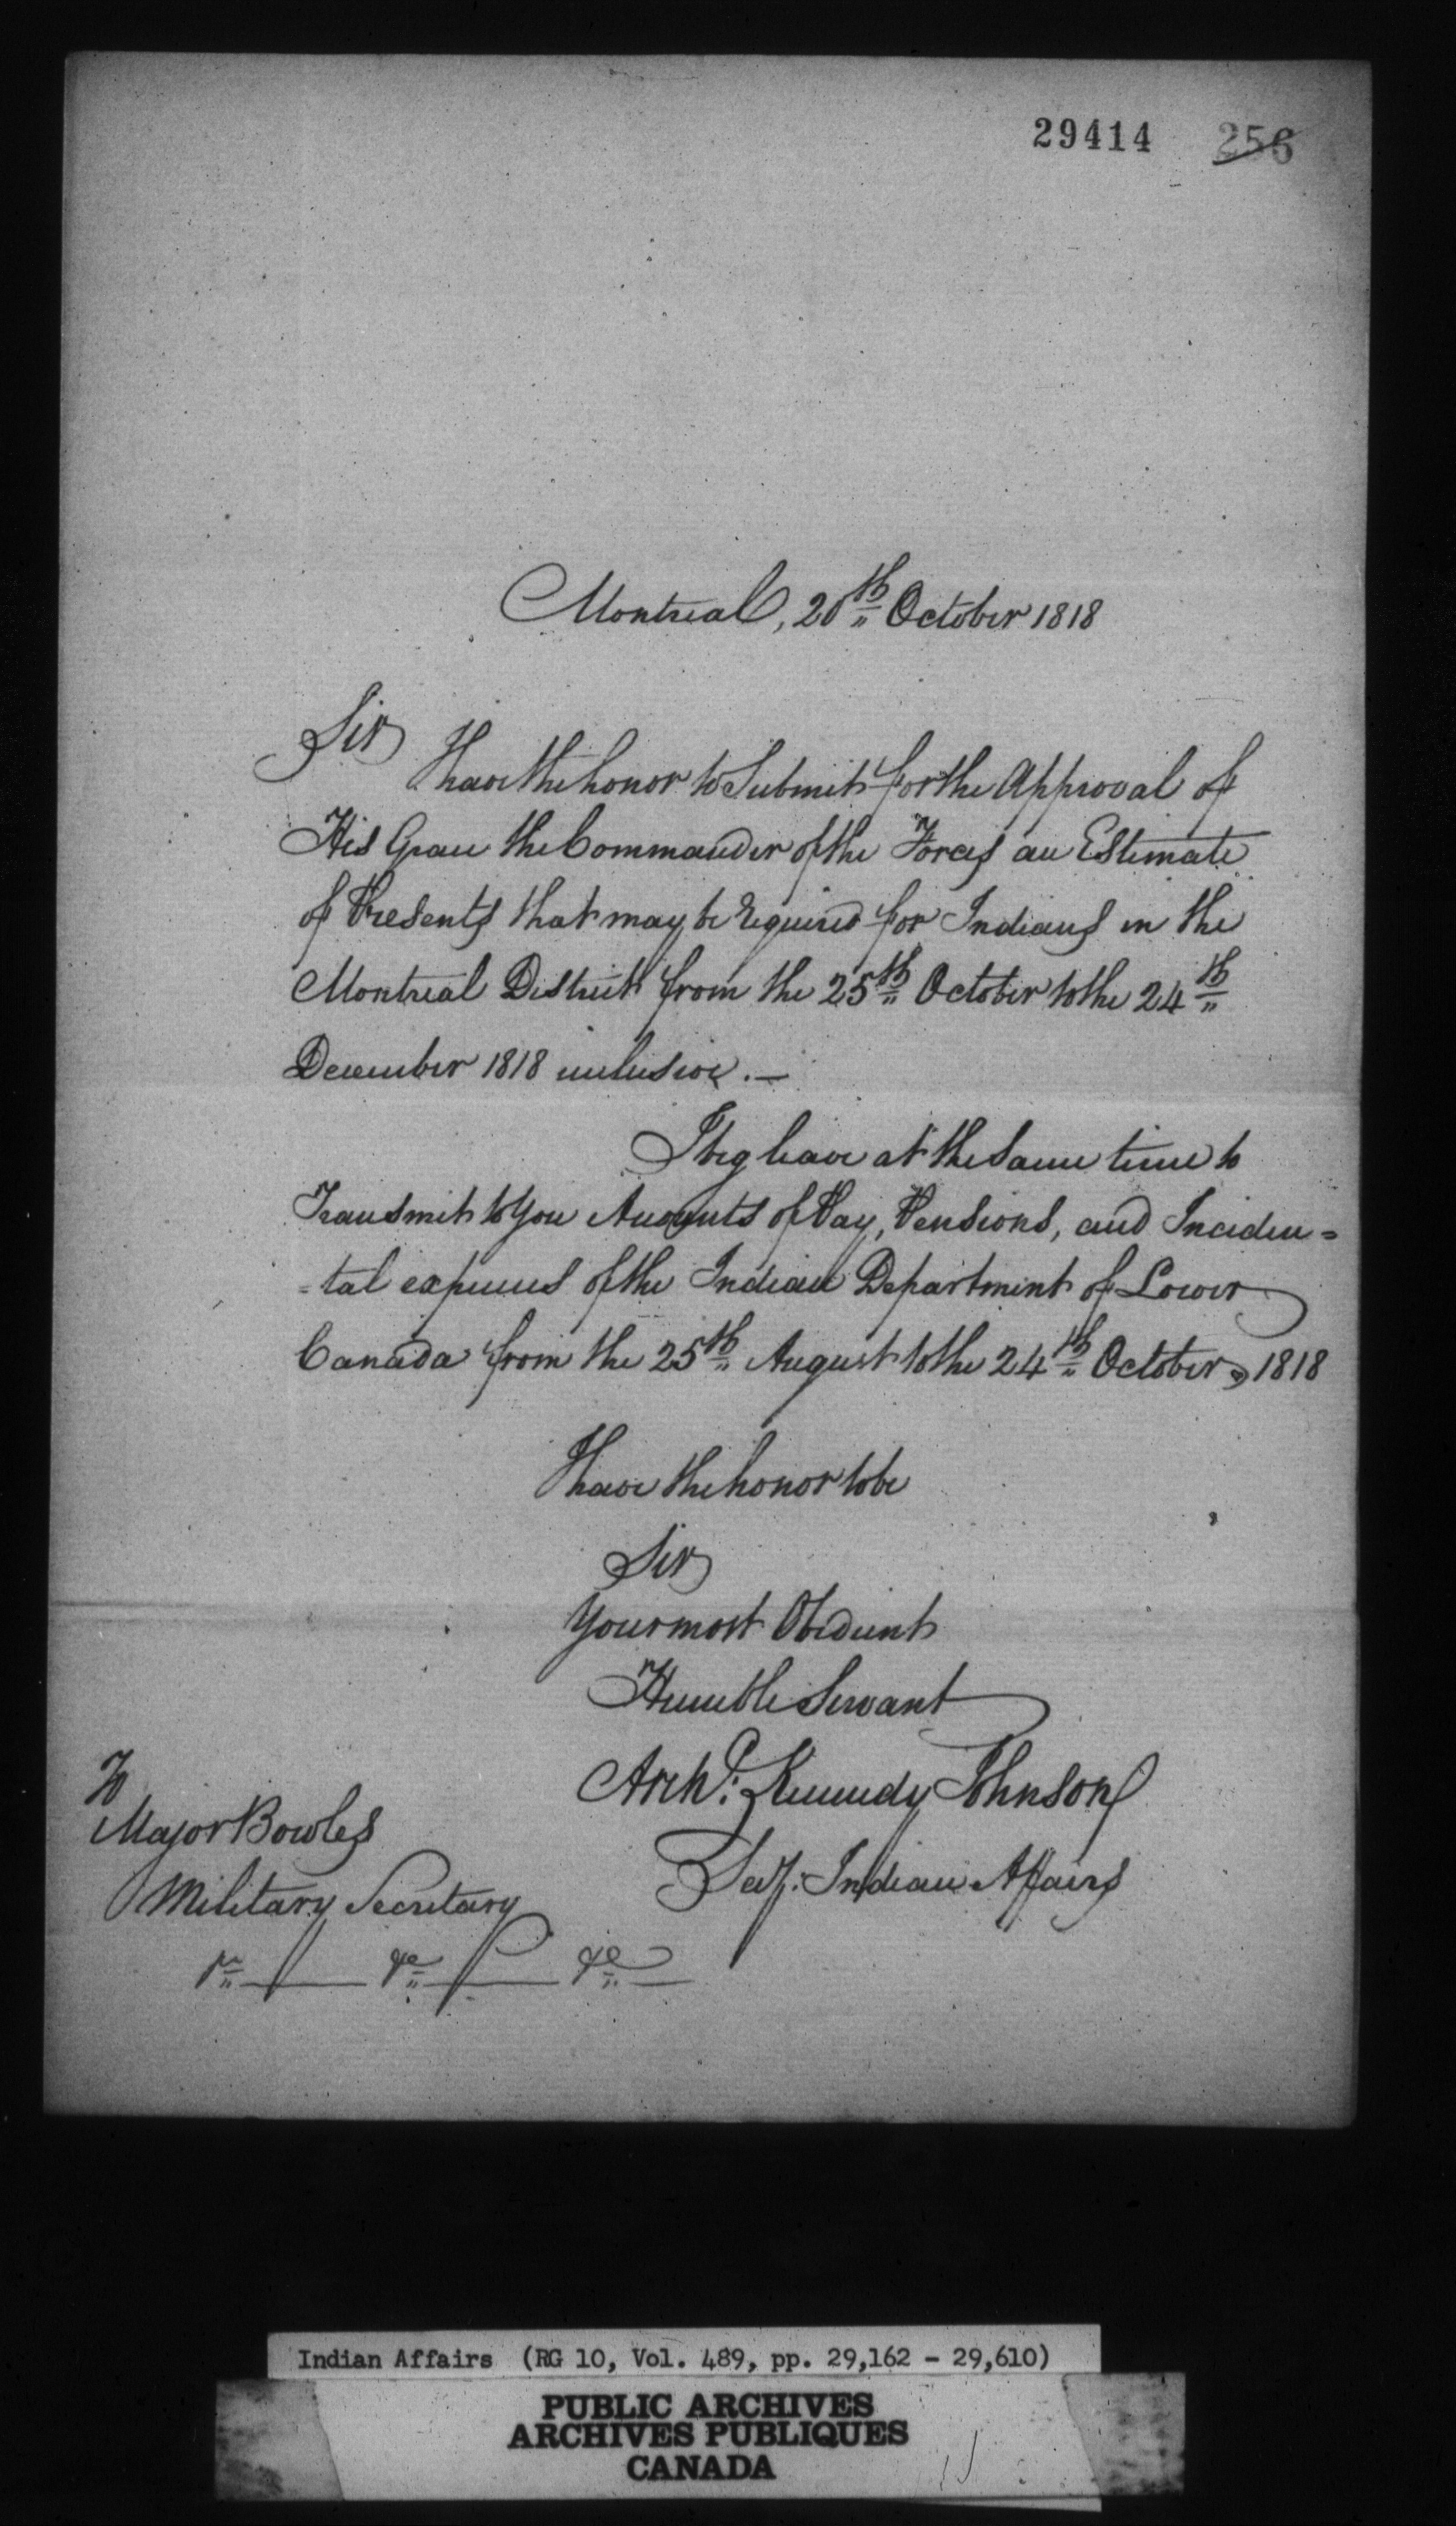 29414 256
Montreal, 20th October 1818
Sir
I have the honor to Submit for the Approval of
His Grace the Commander of the Forces an Estimate
of Presents that may be required for Indians in the
Montreal District from the 25th October to the 24th
December 1818 inclusive. —
I beg leave at the same time to
Transmit to You Accounts of Pay, Pensions, and Inciden=
=tal expenses of the Indian Department of Lower
Canada from the 25th August to the 24th October, 1818
I have the honor to be
Sir
Your most Obedient
Humble Servant
Archd. Kennedy Johnson
Secy. Indian Affairs
To
Major Bowles
Military Secretary
&c &c &c
Indian Affairs (RG 10, Vol. 489, pp. 29,162 - 29,610)
PUBLIC ARCHIVES
ARCHIVES PUBLIQUES
CANADA